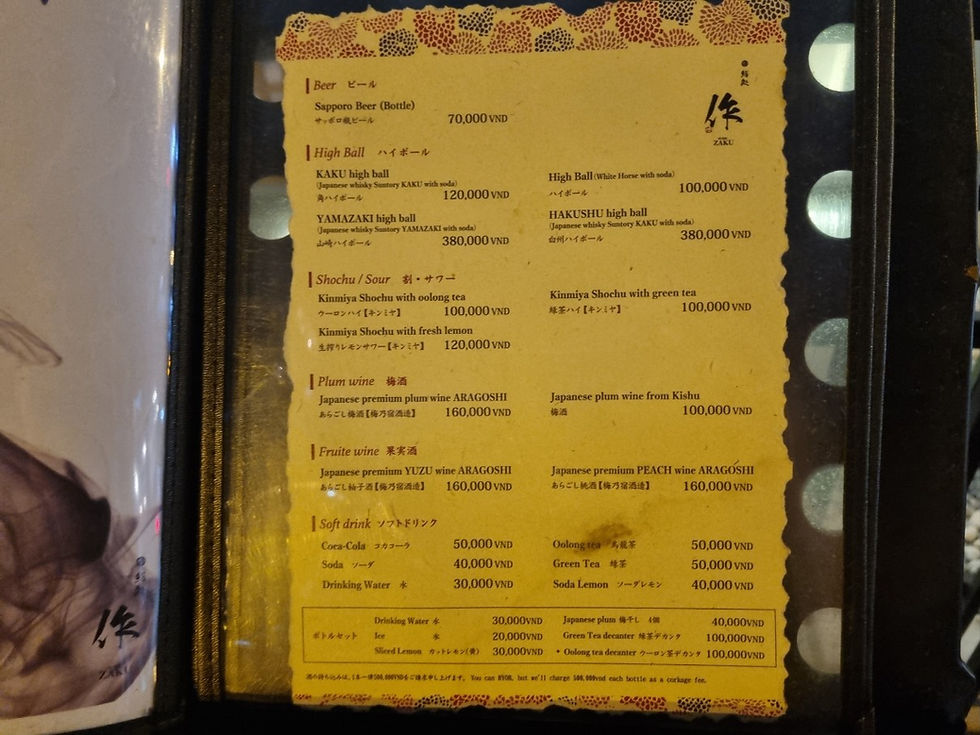 鮨処
作
ZAKU
Beer ビール
Sapporo Beer (Bottle)
サッポロ瓶ビール 70,000 VND
High Ball ハイボール
KAKU high ball
(Japanese whisky Suntory KAKU with soda)
角ハイボール 120,000 VND
High Ball (White Horse with soda)
ハイボール 100,000 VND
YAMAZAKI high ball
(Japanese whisky Suntory YAMAZAKI with soda)
山崎ハイボール 380,000 VND
HAKUSHU high ball
(Japanese whisky Suntory KAKU with soda)
白州ハイボール 380,000 VND
Shochu / Sour 割・サワー
Kinmiya Shochu with oolong tea
ウーロンハイ【キンミヤ】 100,000 VND
Kinmiya Shochu with green tea
緑茶ハイ【キンミヤ】 100,000 VND
Kinmiya Shochu with fresh lemon
生搾りレモンサワー【キンミヤ】 120,000 VND
Plum wine 梅酒
Japanese premium plum wine ARAGOSHI
あらごし梅酒【梅乃宿酒造】 160,000 VND
Japanese plum wine from Kishu
梅酒 100,000 VND
Fruite wine 果実酒
Japanese premium YUZU wine ARAGOSHI
あらごし柚子酒【梅乃宿酒造】 160,000 VND
Japanese premium PEACH wine ARAGOSHI
あらごし桃酒【梅乃宿酒造】 160,000 VND
Soft drink ソフトドリンク
Coca-Cola コカコーラ 50,000 VND
Oolong tea 烏龍茶 50,000 VND
Soda ソーダ 40,000 VND
Green Tea 緑茶 50,000 VND
Drinking Water 水 30,000 VND
Soda Lemon ソーダレモン 40,000 VND
ボトルセット
Drinking Water 水 30,000VND
Japanese plum 梅干し 4個 40,000VND
Ice 氷 20,000VND
Green Tea decanter 緑茶デカンタ 100,000VND
Sliced Lemon カットレモン(黄) 30,000VND
* Oolong tea decanter ウーロン茶デカンタ 100,000VND
酒の持ち込みは、1本一律500,000VNDをご請求申し上げます。 You can BYOB, but we'll charge 500,000vnd each bottle as a corkage fee.
鮨処
作
ZAKU